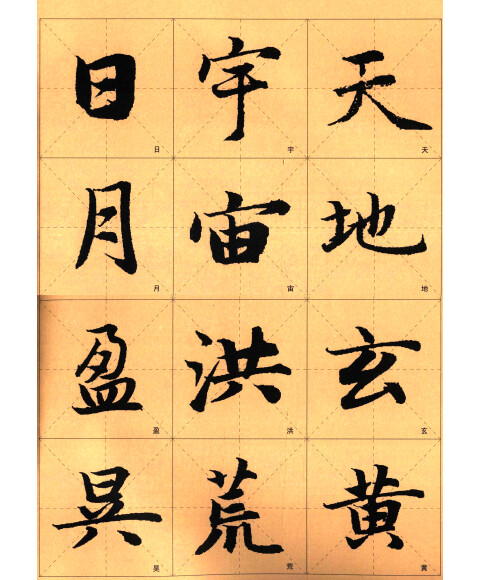 天地玄黄
宇宙洪荒
日月盈昃
天地玄黄
宇宙洪荒
日月盈